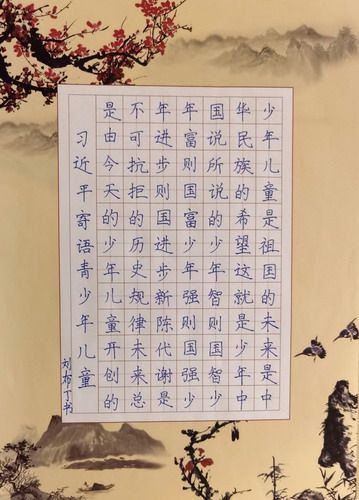 少年儿童是祖国的未来是中
华民族的希望这就是少年中
国说所说的少年智则国智少
年富则国富少年强则国强少
年进步则国进步新陈代谢是
不可抗拒的历史规律未来总
是由今天的少年儿童开创的
习近平寄语青少年儿童
刘布丁书